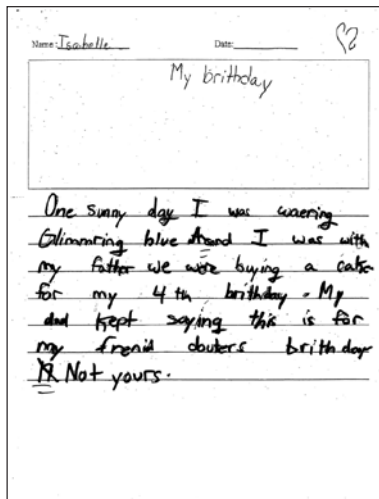 Name: Isabelle Date:
My brithday
One sunny day I was waering
Glimmring blue and I was with
my father we were buying a cake
for my 4th brithday. My
dad kept saying this is for
my frenid douters brithday
Not yours.